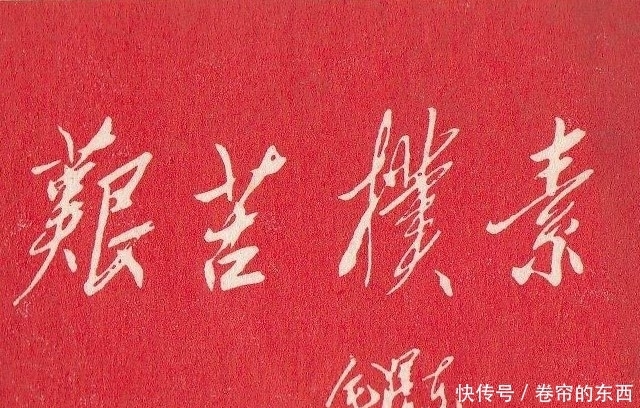 艱苦樸素
快传号 / 卷帘的东西